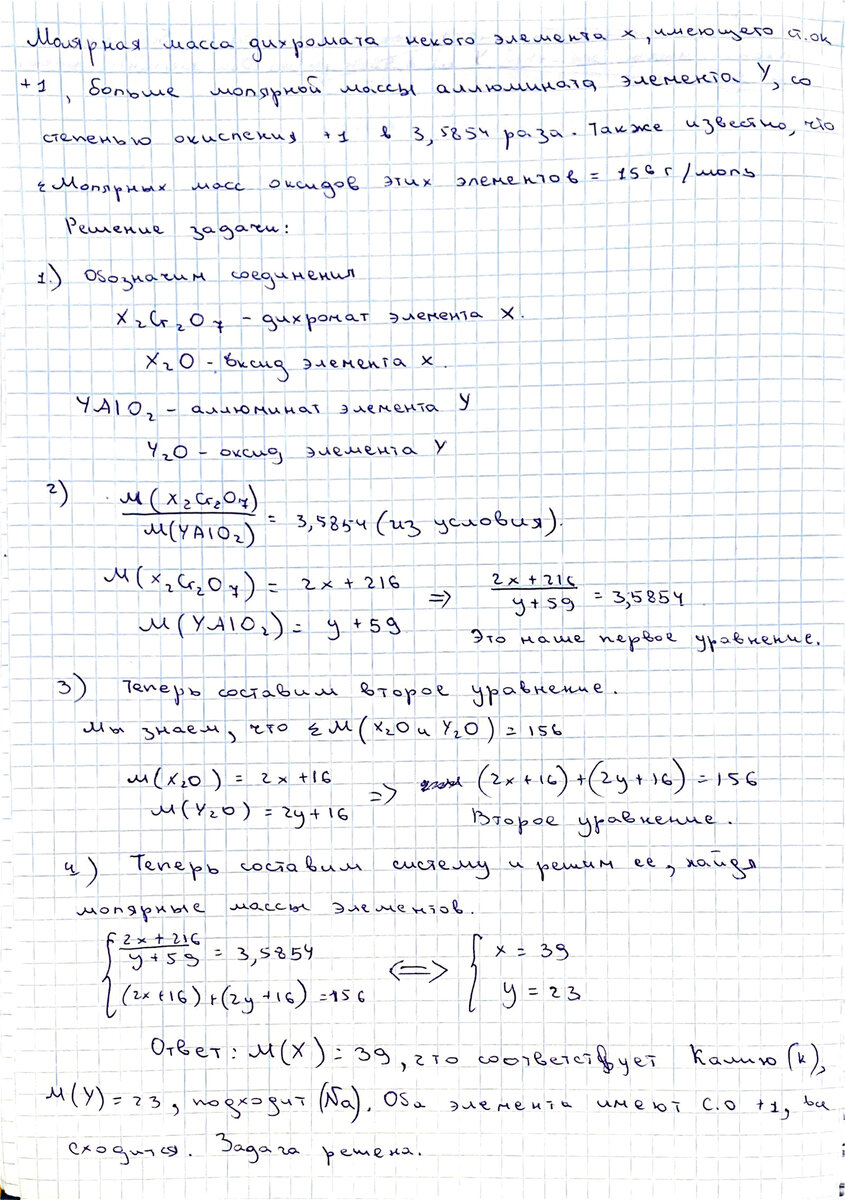 Молярная масса дихромата некого элемента x, имеющего ст.ок
+1, больше молярной массы аллюмината элемента Y, со
степенью окисления +1 в 3,5854 раза. Также известно, что
Σ Молярных масс оксидов этих элементов = 156 г/моль
Решение задачи:
1.) Обозначим соединения
X₂Cr₂O₇ - дихромат элемента X.
X₂O - оксид элемента x.
YAlO₂ - аллюминат элемента Y
Y₂O - оксид элемента Y
2) M(X₂Cr₂O₇)/M(YAlO₂) = 3,5854 (из условия).
M(X₂Cr₂O₇) = 2x + 216 => (2x + 216)/(y + 59) = 3,5854
M(YAlO₂) = y + 59 Это наше первое уравнение.
3) Теперь составим второе уравнение.
Мы знаем, что Σ M(X₂O и Y₂O) = 156
M(X₂O) = 2x + 16 => (2x + 16) + (2y + 16) = 156
M(Y₂O) = 2y + 16 Второе уравнение.
4) Теперь составим систему и решим ее, найдя
молярные массы элементов.
{ (2x + 216)/(y + 59) = 3,5854 <=> { x = 39
(2x + 16) + (2y + 16) = 156 y = 23
Ответ: M(X) = 39, что соответствует Калию (K),
M(Y) = 23, подходит (Na). Оба элемента имеют с.о +1, все
сходится. Задача решена.